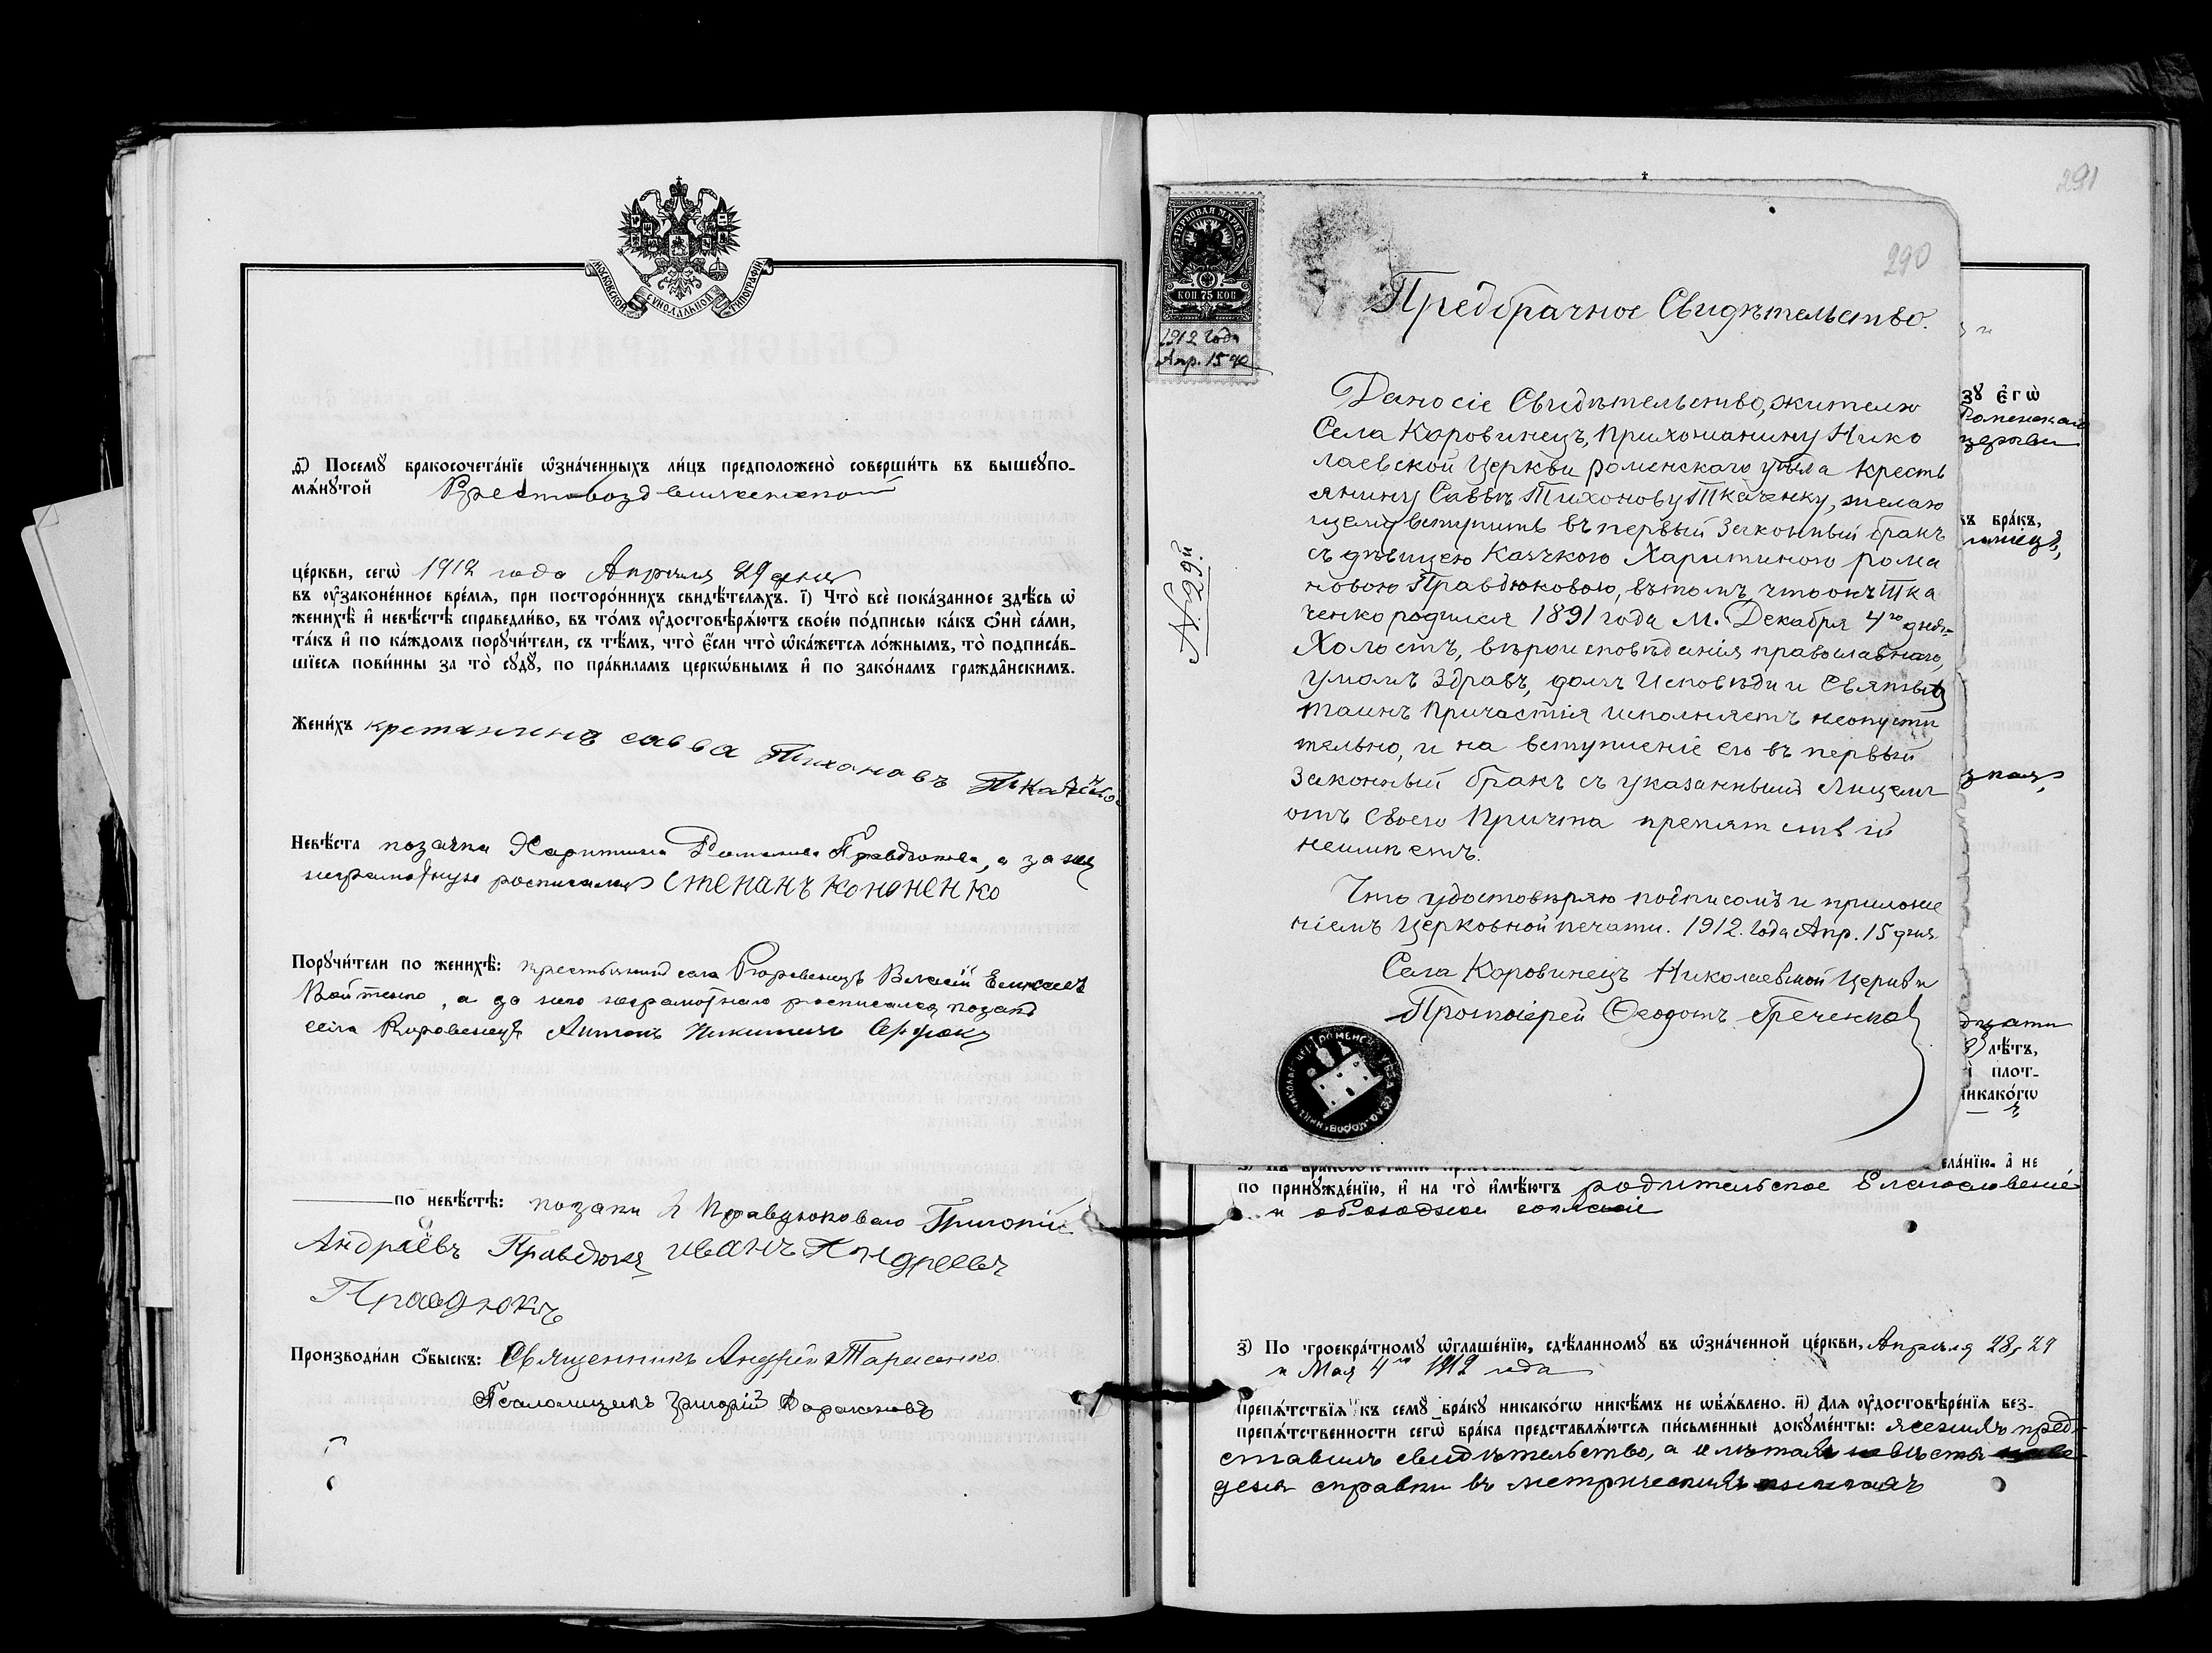 МОСКОВСКОЙ СѴНОДАЛЬНОЙ ТИПОГРАФІИ
ѳ҃) Посемꙋ̀ бракосочета́нїе ѡ҆зна́ченныхъ ли́цъ предположено̀ соверши́ть въ вышеꙋпо-
мѧ́нꙋтой Крестовоздвиженской
це́ркви, сегѡ̀ 1912 года Апрѣля 29 дня
въ оу҆зако́не́нное вре́мѧ, при посторо́ннихъ свидѣ́телѧхъ. і҃) Что̀ всѐ пока́занное здѣ́сь ѡ҆
женихѣ̀ и҆ невѣ́стѣ справедли́во, въ то́мъ оу҆достовѣрѧ́ютъ свое́ю по́дписью ка́къ ѻ҆нѝ са́ми,
та́къ и҆ по ка́ждомъ порꙋчи́тели, съ тѣ́мъ, что̀ є҆́сли что̀ ѡ҆ка́жетсѧ ло́жнымъ, то̀ подписа́в-
шїесѧ пови́нны за то̀ сꙋдꙋ̀, по пра́виламъ церкѡ́внымъ и҆ по зако́намъ гражда̂нскимъ.
Жени́хъ крстанинъ савва Тихоновъ Ткаченко
Невѣ́ста козачка Харитина Романова Правдюкова, а за нея
неграмотную росписался степанъ кононенко
Порꙋчи́тели по женихѣ̀: крестьянинъ села Коровинецъ Власій
Войтенко, а за него неграмотнаго росписался козакъ
села Коровинецъ Антонъ Никитинъ
по невѣ́стѣ: козаки х Правдюковаго Григорій
Андрѣевъ Правдюкъ иванъ Андреевъ
Правдюкъ
Производи́ли ѻ҆́быскъ: Священникъ Андрей Тарасенко
Псаломщикъ Григорій
291
290
ГЕРБОВАЯ МАРКА
КОП 75 КОП
1912 года
Апр. 15 го
№ 29й
Предбрачное Свидѣтельство.
Дано сіе Свидѣтельство, жителю
Села Коровинецъ, прихожанину Нико
лаевской Церкви роменскаго уѣзда кресть
янину Саввѣ Тихонову Ткаченку, желаю
щему вступить въ первый Законный бракъ
съ дѣвицею Казачкою Харитиною рома
новою Правдюковою, въ томъ, что онъ Тка
ченко родился 1891 года М. Декабря 4го дня,
Холостъ, вѣроисповѣданія православнаго,
умомъ Здравъ, долгъ Исповѣди и Святыхъ
таинъ Причастія исполняетъ неопусти
тельно, и на вступленіе его въ первый
Законный бракъ съ указаннымъ Лицемъ
отъ своего Причта препятствій
неимѣетъ.
Что удостовѣряю подписомъ и приложе
ніемъ Церковной печати. 1912. года Апр. 15 дня.
Села Коровинецъ Николаевской Церкви
Протоіерей Ѳеодотъ Греченко
зꙋ є҆гѡ̀
Роменскаго
церкви
къ бра́къ,
дцати
лѣ́тъ,
і плот-
никако́гѡ
ела́нїю, а҆ не
по принꙋжде́нїю, и҆ на то̀ и҆мѣ́ютъ родительское благословеніе
и обоюдное согласіе
з҃) По троекра́тномꙋ ѡ҆глаше́нїю, сдѣ́ланномꙋ въ ѡ҆зна́ченной це́ркви, Апрѣля 28, 29
и Мая 4го 1912 года
препѧ́тствїѧ къ семꙋ̀ бра́кꙋ никако́гѡ никѣ́мъ не ѡ҆б̾ѧ́влено. и҃) Для оу҆достовѣре́нїѧ без-
препѧ́тственности сегѡ̀ бра́ка представлѧ́ютсѧ пи́сьменные докꙋме́нты: женихъ пред-
ставилъ свидѣтельство, а о лѣтахъ невѣсты наве-
дена справка въ метрическихъ книгахъ